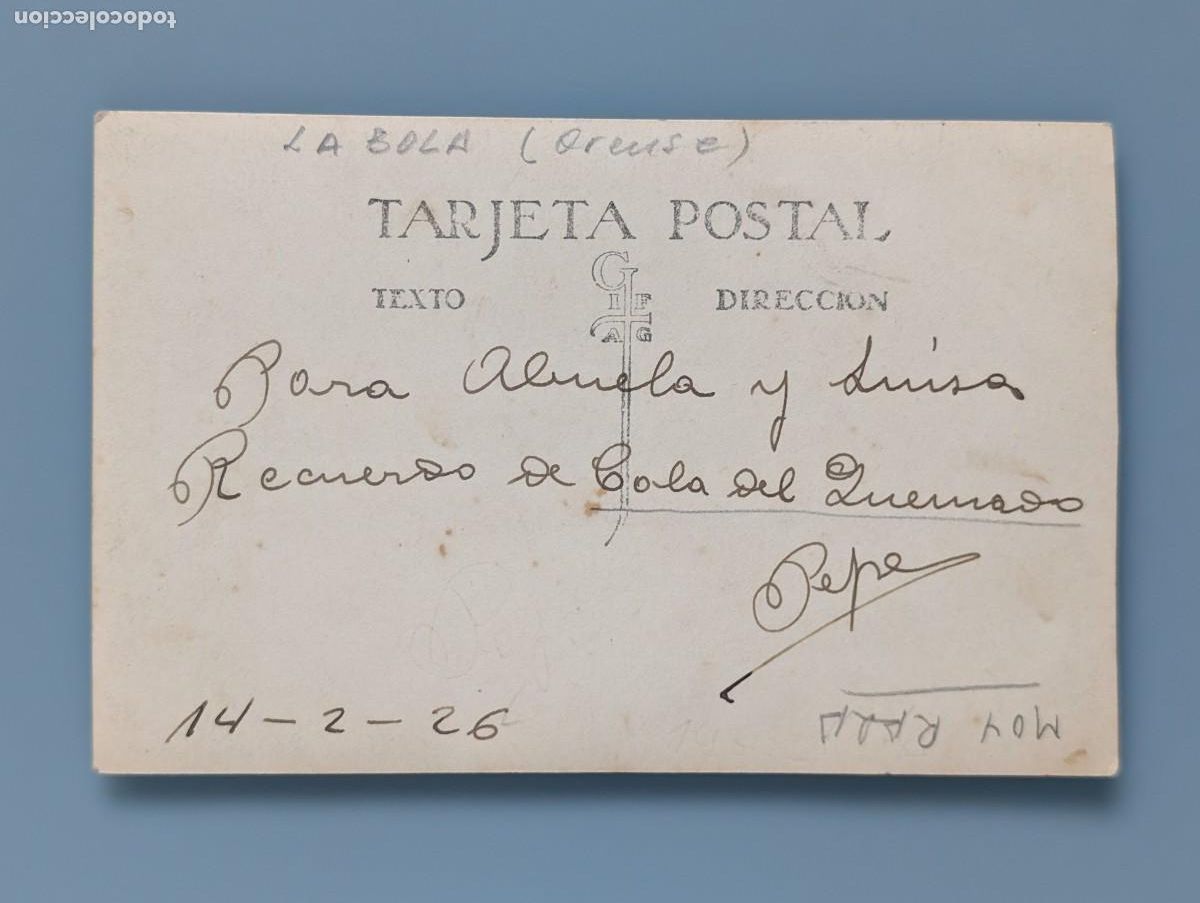 todocoleccion
LA BOLA (Orense)
TARJETA POSTAL
TEXTO
G
I F
A G
DIRECCION
Para Abuela y Luisa
Recuerdo de Cola del Quemado
Pepe
14-2-26
MOY RARA